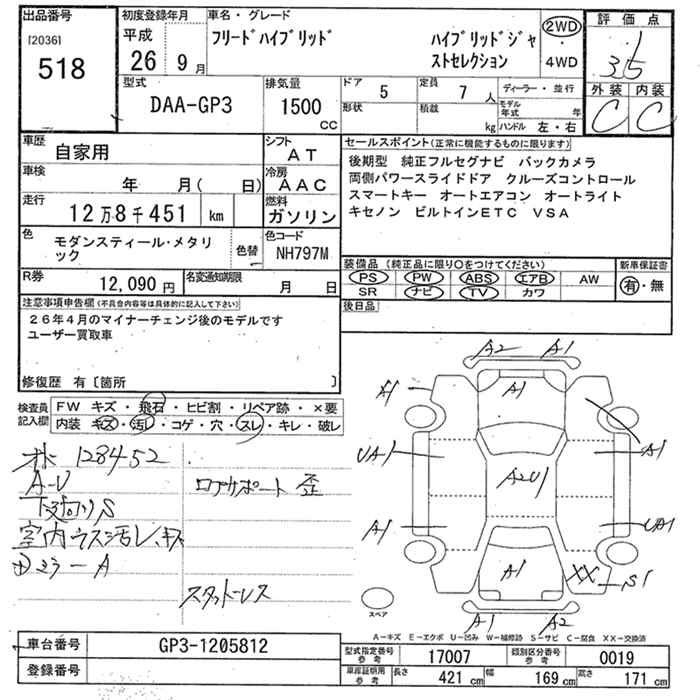 出品番号
[2036]
518
初度登録年月
平成
26 9月
車名・グレード
フリードハイブリッド
ハイブリッドジャ
ストセレクション
2WD
・4WD
評価点
3.5
外装 内装
C C
型式
DAA-GP3
排気量
1500
CC
ドア 5
形状
定員 7人
積載 kg
ディーラー・並行
モデル年式 年
ハンドル 左・右
車歴
自家用
車検
年 月( 日)
走行
12万8千451 km
色
モダンスティール・メタリ
ック
色替
R券
12,090円
名変通知期限 月 日
シフト
AT
冷房
AAC
燃料
ガソリン
色コード
NH797M
セールスポイント(正常に機能するものに限ります)
後期型 純正フルセグナビ バックカメラ
両側パワースライドドア クルーズコントロール
スマートキー オートエアコン オートライト
キセノン ビルトインETC VSA
装備品(純正品に限り○をつけてください)
PS PW ABS エアB AW
SR ナビ TV カワ
新車保証書
有・無
後日品
注意事項申告欄(不具合内容等は具体的に記入して下さい)
26年4月のマイナーチェンジ後のモデルです
ユーザー買取車
修復歴 有〔箇所 〕
検査員
記入欄
FW キズ・飛石・ヒビ割・リペア跡・×要
内装 キズ・汚レ・コゲ・穴・スレ・キレ・破レ
128452
A-U
下廻りS
室内ウス汚レ、キズ
ロアサポート 歪
スタッドレス
A2 A1
A1 A1
UA1 A1
A2U1
A1 UA1
A1 XX S1
A1 A2
スペア
A-キズ E-エクボ U-凹み W-補修跡 S-サビ C-腐食 XX-交換済
車台番号 GP3-1205812
登録番号
型式指定番号 参考 17007 類別区分番号 参考 0019
車庫証明用 参考 長さ 421cm 幅 169cm 高さ 171cm